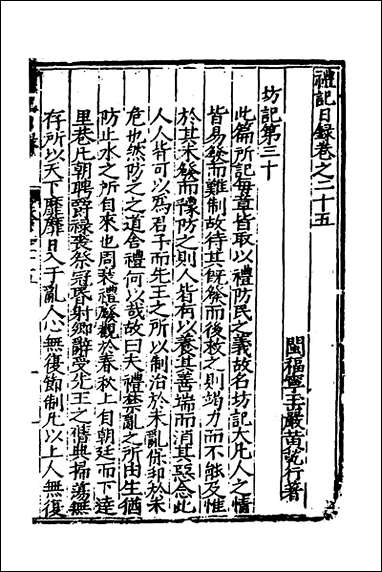 禮記日録卷之二十五
閩福寧玉巖黄乾行著
坊記第三十
此篇所記每章皆取以禮防民之義故名坊記大凡人之情
皆易發而難制故待其旣發而後救之則竭力而不能及惟
於其未發而豫防之則人皆有以養其善端而消其惡念此
人人皆可以爲君子而先王之所以制治於未亂保邦於未
危也然防之之道舍禮何以哉故曰夫禮禁亂之所由生猶
防止水之所自來也周衰禮廢觀於春秋上自朝廷而下逹
里巷凡朝聘爵禄喪祭冠昏射鄉辭受先王之舊典掃蕩無
存所以天下靡靡日入于亂人心無復節制凡以上人無復